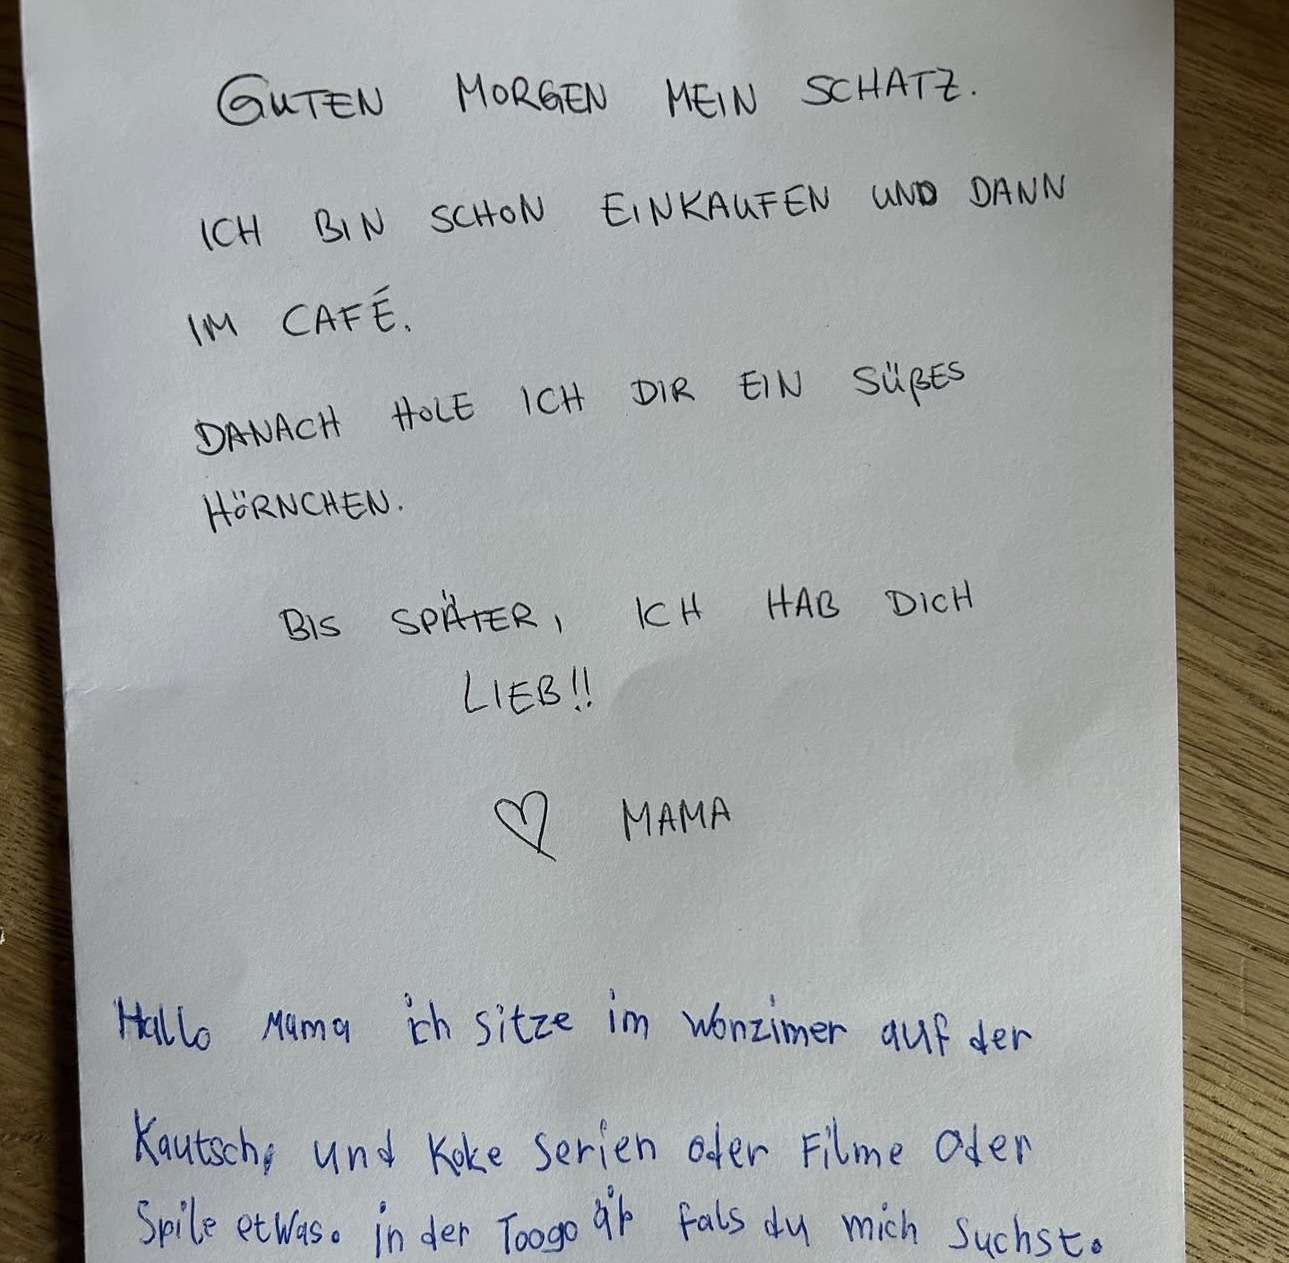 GUTEN MORGEN MEIN SCHATZ.
ICH BIN SCHON EINKAUFEN UND DANN
IM CAFÉ.
DANACH HOLE ICH DIR EIN SÜßES
HÖRNCHEN.
BIS SPÄTER, ICH HAB DICH
LIEB!!
MAMA
Hallo Mama ich sitze im wonzimer auf der
Kautsch, und Koke Serien oder Filme oder
Spile etwas. in der Toogo äp fals du mich Suchst.